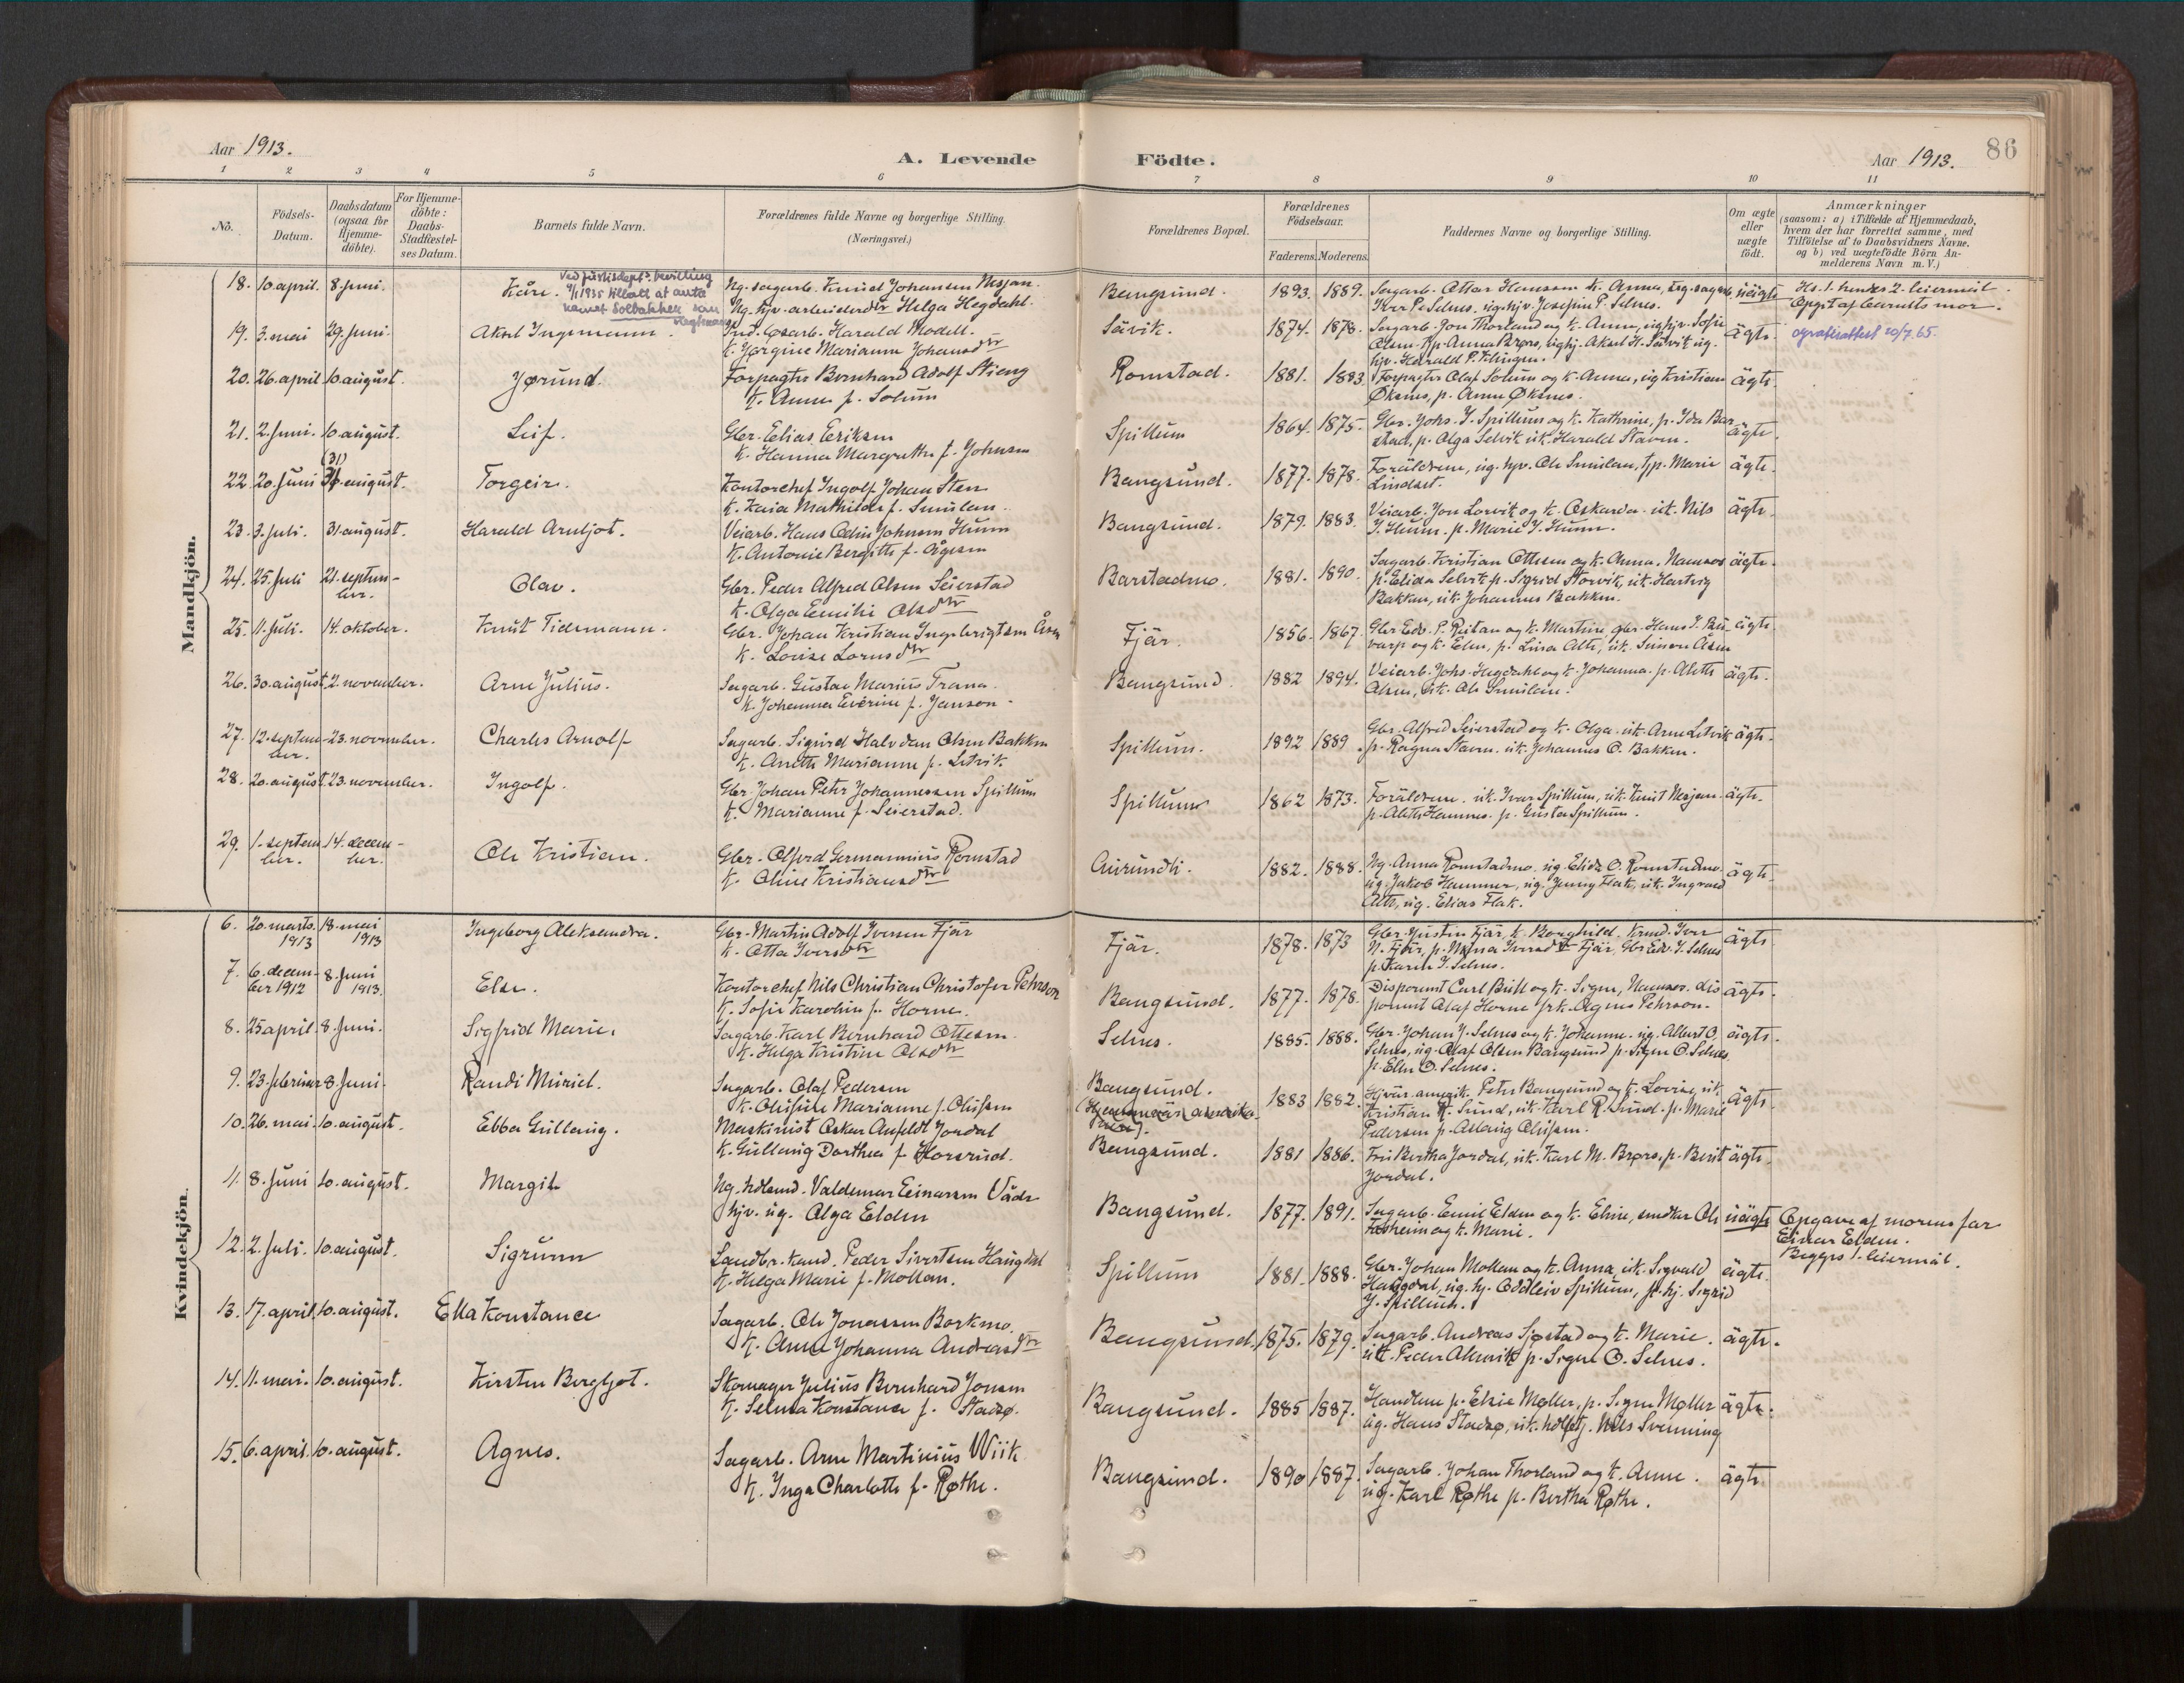 Aar 1913.
A. Levende
Födte.
Aar 1913.
86
1 2 3 4 5 6 7 8 9 10 11
No.
Födsels-
Datum.
Daabsdatum
(ogsaa for
Hjemme-
döbte).
For Hjemme-
döbte:
Daabs-
Stadfæstel-
ses Datum.
Barnets fulde Navn.
Forældrenes fulde Navne og borgerlige Stilling.
(Næringsvei.)
Forældrenes Bopæl.
Forældrenes
Födselsaar.
Faderens. Moderens.
Faddernes Navne og borgerlige Stilling.
Om ægte
eller
uægte
födt.
Anmærkninger
(saasom: a) i Tilfælde af Hjemmedaab,
hvem der har forrettet samme, med
Tilföielse af to Daabsvidners Navne,
og b) ved uægtefödte Börn An-
melderens Navn m. V.)
Mandkjön.
18. 10. april. 8. juni. Kåre.
Ved justisdept's bevilling
9/1 1935 tillatt at anta
namet Solbakken som
slegtsnavn
Ng. sagarb. Knud Johansen Nesjan.
Ng. hjv. arbeidersdtr Helga Hegdahl.
Bangsund. 1893. 1889.
Sagarb. Ottar Hanssen k. Anna, ug. sagarb.
Iver P. Selnes, ug. hjv. Josefin P. Selnes.
uägte
Hs. 1. hendes 2. leiermål.
Opgit af barnets mor.
19. 3. mai 29. juni. Aksel Ingemann.
Ind. løsarb. Harald Modell.
K. Jørgine Marianne Johansdtr
Sävik. 1874. 1878.
Sagarb. Jon Thorland og k. Anne, ug. hjv. Sofie
Olsen. Kp. Anna Brørs, ug. hj. Aksel H. Sävik ug.
hjv. Harald P. Klingen.
ägte.
20. 26. april 10. august. Jørund.
Forpagter Bernhard Adolf Skieng
K. Anna f. Solum
Romstad. 1881. 1883
Forpagter Olaf Solum og k. Anna, ug. Kristian
Øksnes, p. Anna Øksnes.
ägte.
21. 2. juni. 10. august. Leif.
Gbr. Elias Eriksen
K. Hanna Margrethe f. Johnsen
Spillum 1864. 1875.
Gbr. Johs. J. Spillum og k. Kathrine, p. Ida Bar-
stad, p. Olga Selvik uk. Harald Staven.
ägte.
22. 20. juni (31) august. Torgeir.
Kontorchef Ingolf Johan Sten
K. Kaia Mathilde f. Smilan.
Bangsund. 1877. 1878.
Foräldrene, ug. hjv. Ole Smilan, tjp. Marie
Lindset.
ägte.
23. 3. juli. 31. august. Harald Arnljot.
Veiarb. Hans Odin Johnsen Hunn
K. Antonie Bergitte f. Ågesen
Bangsund. 1879. 1883.
Veiarb. Jon Lorvik og k. Oskarda. uk. Nils
J. Hunn. p. Marie J. Hunn.
ägte.
24. 25. juli 21. septem-
ber. Olav.
Gbr. Peder Alfred Olsen Seierstad
K. Olga Emilie Olsdtr
Barstadmo. 1881. 1890.
Sagarb. Kristian Ottesen og k. Anna, Namsos
p. Elida Selvik p. Sigrid Storvik, uk. Hartvig
Bakken, uk. Johannes Bakken.
ägte.
25. 11. juli. 14. oktober. Knut Tidemann.
Gbr. Johan Kristian Ingebrigtsen Åsen
K. Lovise Lornsdtr
Fjär. 1856. 1867.
Gbr. Edv. P. Reitan og k. Martine, gbr. Hans J. Bei-
varp og k. Elen, p. Lina Alte, uk. Simon Åsen
ägte.
26. 30. august. 2. november. Arne Julius.
Sagarb. Gustav Marius Trana.
K. Johanna Severine f. Janson.
Bangsund. 1882 1894.
Veiarb. Johs. Hegdahl og k. Johanna. p. Aleth
Olsen, uk. Ole Smilan.
ägte.
27. 12. septem-
ber. 23. november. Charles Arnolf
Sagarb. Sigurd Halvdan Olsen Bakken
K. Anette Marianne f. Setvik.
Spillum. 1892 1889.
Gbr. Alfred Seierstad og k. Olga. uk. Arne Setvik
p. Ragna Staven. uk. Johannes O. Bakken.
ägte.
28. 20. august. 23. november. Ingolf.
Gbr. Johan Peter Johannessen Spillum
K. Marianne f. Seierstad.
Spillum 1862 1873.
Foräldrene. uk. Ivar Spillum, uk. Knut Nesjan.
p. Aleth Hammer. p. Gusta Spillum.
ägte.
29. 1. septem-
ber. 14. decem-
ber. Ole Kristian.
Gbr. Alfred Germannius Romstad
K. Oline Kristiansdtr
Aurundli. 1882. 1888.
Ng. Anna Romstadmo. ug. Elida O. Romstadmo.
ug. Jakob Hammer, ug. Jenny Flak, uk. Ingvald
Alte, ug. Elias Flak.
ägte.
Kvindekjön.
6. 20. marts.
1913 18. mai
1913 Ingeborg Aleksandra.
Gbr. Martin Adolf Iversen Fjär
K. Otta Iversdtr
Fjär. 1878. 1873
Gbr. Justin Fjär, k. Borghild. Knud. Iver
N. Fjär, p. Nikna Iversdtr Fjär, Gbr. Edv. J. Selnes
p. Karen J. Selnes.
ägte
7. 6. decem-
ber 1912 8. juni
1913. Else.
Kontorchef Nils Christian Christofer Pehrson
K. Sofie Karoline f. Horne.
Bangsund. 1877. 1878.
Disponent Carl Bull og k. Signe, Namsos. dis-
ponent Olaf Horne frk. Agnes Pehrson.
ägte.
8. 25 april. 8. juni. Sigfrid Marie.
Sagarb. Karl Bernhard Ottesen.
K. Helga Kristine Olsdtr
Selnes. 1885. 1888.
Gbr. Johan J. Selnes og k. Johanne. ug. Albert O.
Selnes, ug. Olaf Olsen Bangsund p. Signe O. Selnes
p. Elen O. Selnes.
ägte.
9. 23. februar 8. juni. Randi Muriel.
Sagarb. Olaf Pedersen
K. Olufine Marianne f. Olufsen
Bangsund.
1883 1882.
Hjvär. amerik. Peter Bangsund og k. Lovise, uk.
Kristian R. Sund, uk. Karl R. Sund. p. Marie
Pedersen p. Aslaug Olufsen.
ägte.
10. 26. mai. 10. august. Ebba Gullaug.
Maskinist Oskar Anfeldt Jordal
K. Gullaug Dorthea f. Horsrud.
Bangsund. 1881 1886.
Fru Bertha Jordal, uk. Karl M. Brørs, p. Berit
Jordal.
ägte.
11. 8. juni 10. august. Margit
Ng. hdlsmd. Valdemar Einarsen Våde
hjv. ug. Olga Elden
Bangsund. 1877. 1891.
Sagarb. Emil Elden og k. Eline, snedker Ole
Fosheim og k. Marie.
uägte
Opgave af morens far
Einar Elden.
Begges 1. leiermål.
12. 2. juli. 10. august. Sigrunn
Landbr. kand. Peder Sivertsen Haugdal
K. Helga Marie f. Mollan.
Spillum 1881. 1888.
Gbr. Johan Mollan og k. Anna, uk. Sigvald
Haugdal, ug. hj. Oddleiv Spillum, p. hj. Sigrid
J. Spillum.
ägte.
13. 17. april. 10. august. Ella Konstance
Sagarb. Ole Jonassen Borkmo.
K. Anna Johanna Andreasdtr
Bangsund. 1875. 1879.
Sagarb. Andreas Sjøstad og k. Marie.
uk. Peder Almvik p. Signe O. Selnes.
ägte.
14. 11. mai. 10. august. Kirsten Bergljot.
Skomager Julius Bernhard Jensen
K. Selma Konstance f. Stadsø.
Bangsund. 1885 1887.
Handlene p. Elsie Møller, p. Signe Møller
ug. Hans Stadsø, uk. hdlbetj. Nils Svenning
ägte.
15. 6. april. 10. august. Agnes.
Sagarb. Arne Martinius Wiik
K. Inga Charlotte f. Røthe.
Bangsund. 1890 1887.
Sagarb. Johan Thorland og k. Anne.
ug. Karl Røthe p. Bertha Røthe.
ägte.